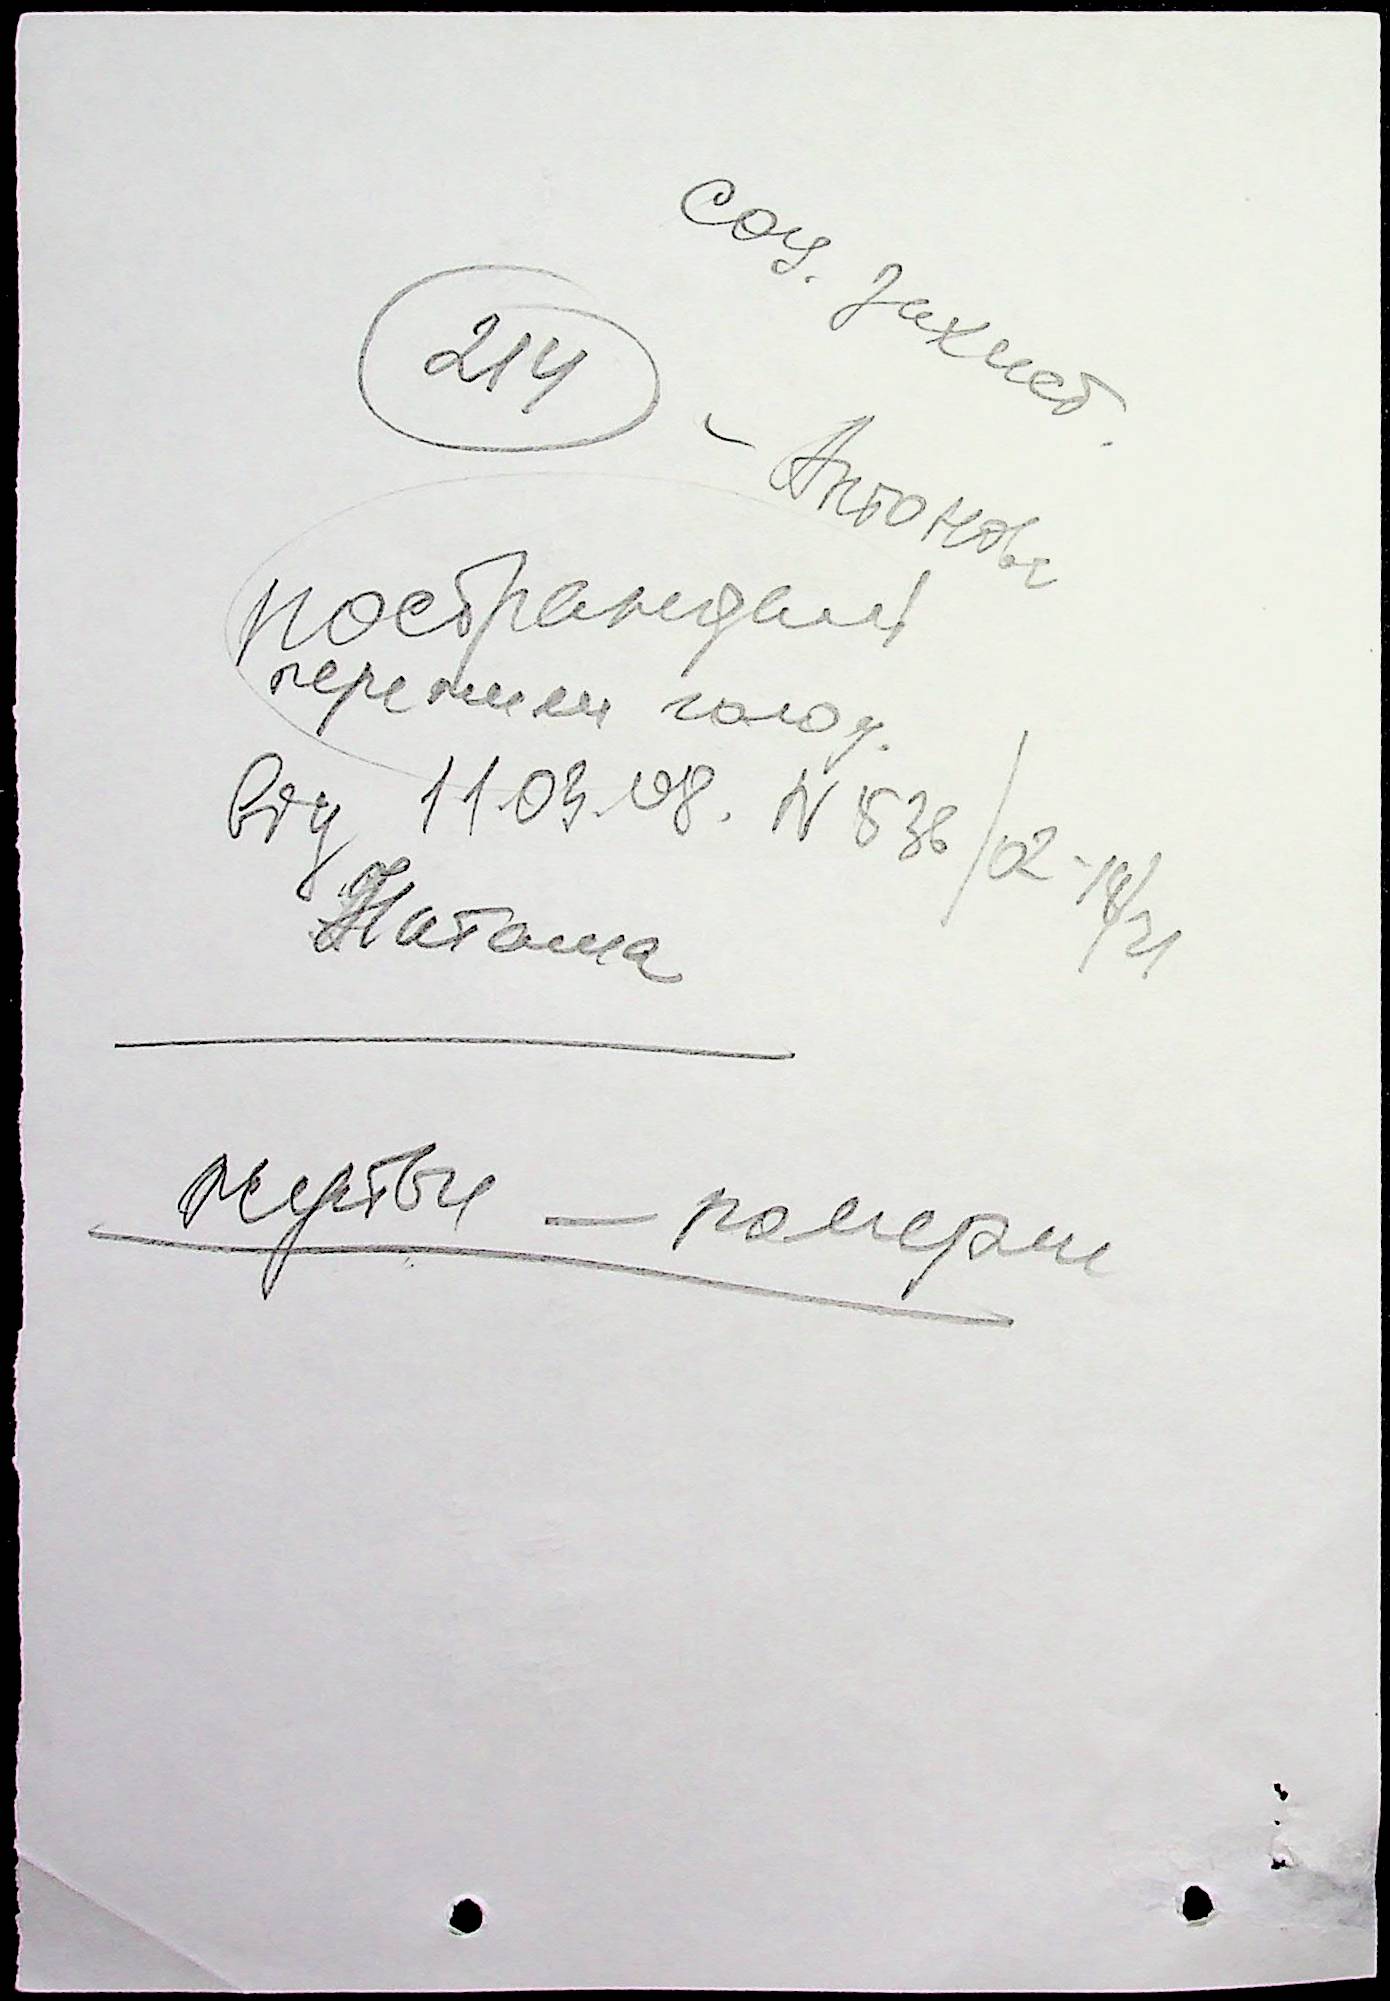 соц. захист.
214 - Антонова
пострандалі
пережили голод.
від 11.03.08. N 536/02-18/21
Наташа
жертви - померли